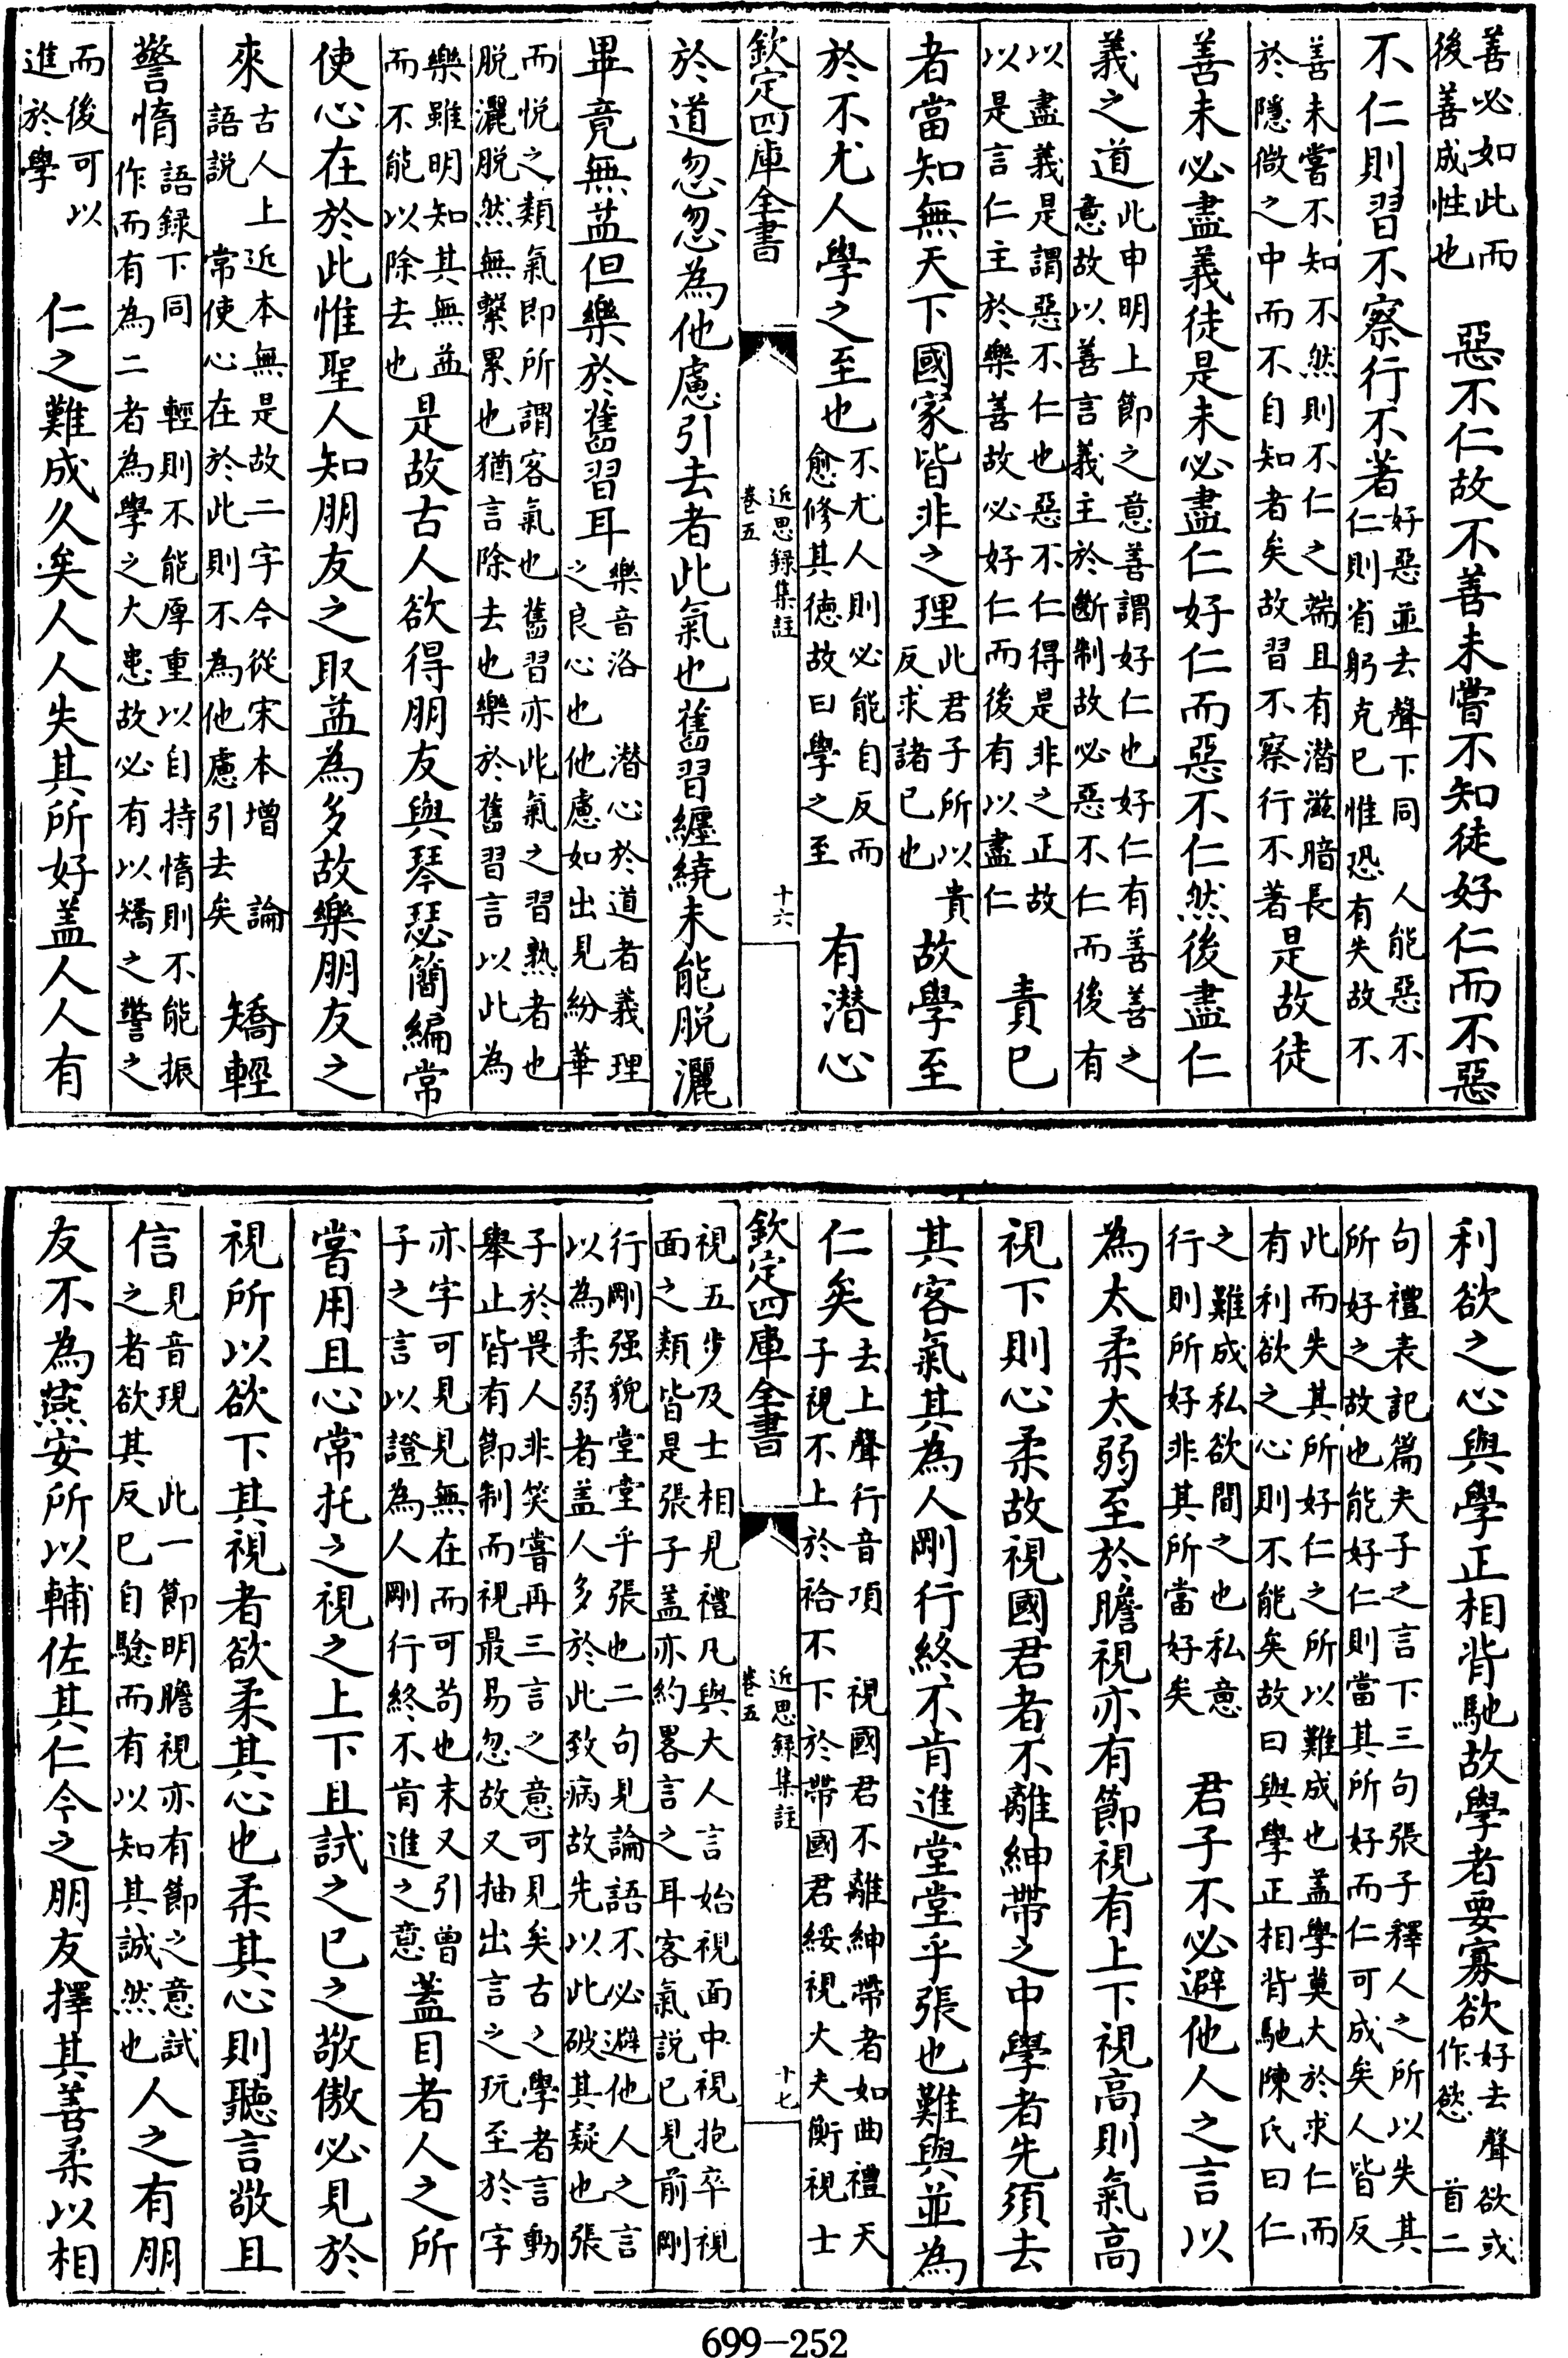 善必如此而後善成性也　惡不仁故不善未嘗不知徒好仁而不惡
不仁則習不察行不著好惡並去聲下同　人能惡不仁則省躬克已惟恐有失故不
善未嘗不知不然則不仁之端且有潜滋暗長於隱微之中而不自知者矣故習不察行不著是故徒
善未必盡義徒是未必盡仁好仁而惡不仁然後盡仁
義之道此申明上節之意善謂好仁也好仁有善善之意故以善言義主於斷制故必惡不仁而後有
以盡義是謂惡不仁也惡不仁得是非之正故以是言仁主於樂善故必好仁而後有以盡仁　責已
者當知無天下國家皆非之理此君子所以貴反求諸已也故學至
於不尤人學之至也不尤人則必能自反而愈修其徳故曰學之至　有潜心
欽定四庫全書
近思録集註
卷五
十六
於道忽忽為他慮引去者此氣也舊習纏繞未能脱灑
畢竟無益但樂於舊習耳樂音洛　潜心於道者義理之良心也他慮如出見紛華
而悦之類氣即所謂客氣也舊習亦此氣之習熟者也脱灑脱然無繫累也猶言除去也樂於舊習言以此為
樂雖明知其無益而不能以除去也是故古人欲得朋友與琴瑟簡編常
使心在於此惟聖人知朋友之取益為多故樂朋友之
來古人上近本無是故二字今從宋本增　論語説　常使心在於此則不為他慮引去矣　矯輕
警惰語録下同　輕則不能厚重以自持惰則不能振作而有為二者為學之大患故必有以矯之警之
而後可以進於學　仁之難成久矣人人失其所好盖人人有
利欲之心與學正相背馳故學者要寡欲好去聲欲或作慾　首二
句禮表記篇夫子之言下三句張子釋人之所以失其所好之故也能好仁則當其所好而仁可成矣人皆反
此而失其所好仁之所以難成也盖學莫大於求仁而有利欲之心則不能矣故曰與學正相背馳陳氏曰仁
之難成私欲間之也私意行則所好非其所當好矣　君子不必避他人之言以
為太柔太弱至於瞻視亦有節視有上下視高則氣高
視下則心柔故視國君者不離紳帶之中學者先須去
其客氣其為人剛行終不肯進堂堂乎張也難與並為
仁矣去上聲行音項　視國君不離紳帶者如曲禮天子視不上於袷不下於帶國君綏視大夫衡視士
欽定四庫全書
近思録集註
卷五
十七
視五步及士相見禮凡與大人言始視面中視抱卒視面之類皆是張子盖亦約畧言之耳客氣説已見前剛
行剛强貌堂堂乎張也二句見論語不必避他人之言以為柔弱者盖人多於此致病故先以此破其疑也張
子於畏人非笑嘗再三言之意可見矣古之學者言動舉止皆有節制而視最易忽故又抽出言之玩至於字
亦字可見見無在而可苟也末又引曾子之言以證為人剛行終不肯進之意蓋目者人之所
嘗用且心常托之視之上下且試之已之敬傲必見於
視所以欲下其視者欲柔其心也柔其心則聽言敬且
信見音現　此一節明瞻視亦有節之意試之者欲其反已自驗而有以知其誠然也人之有朋
友不為燕安所以輔佐其仁今之朋友擇其善柔以相
699－252